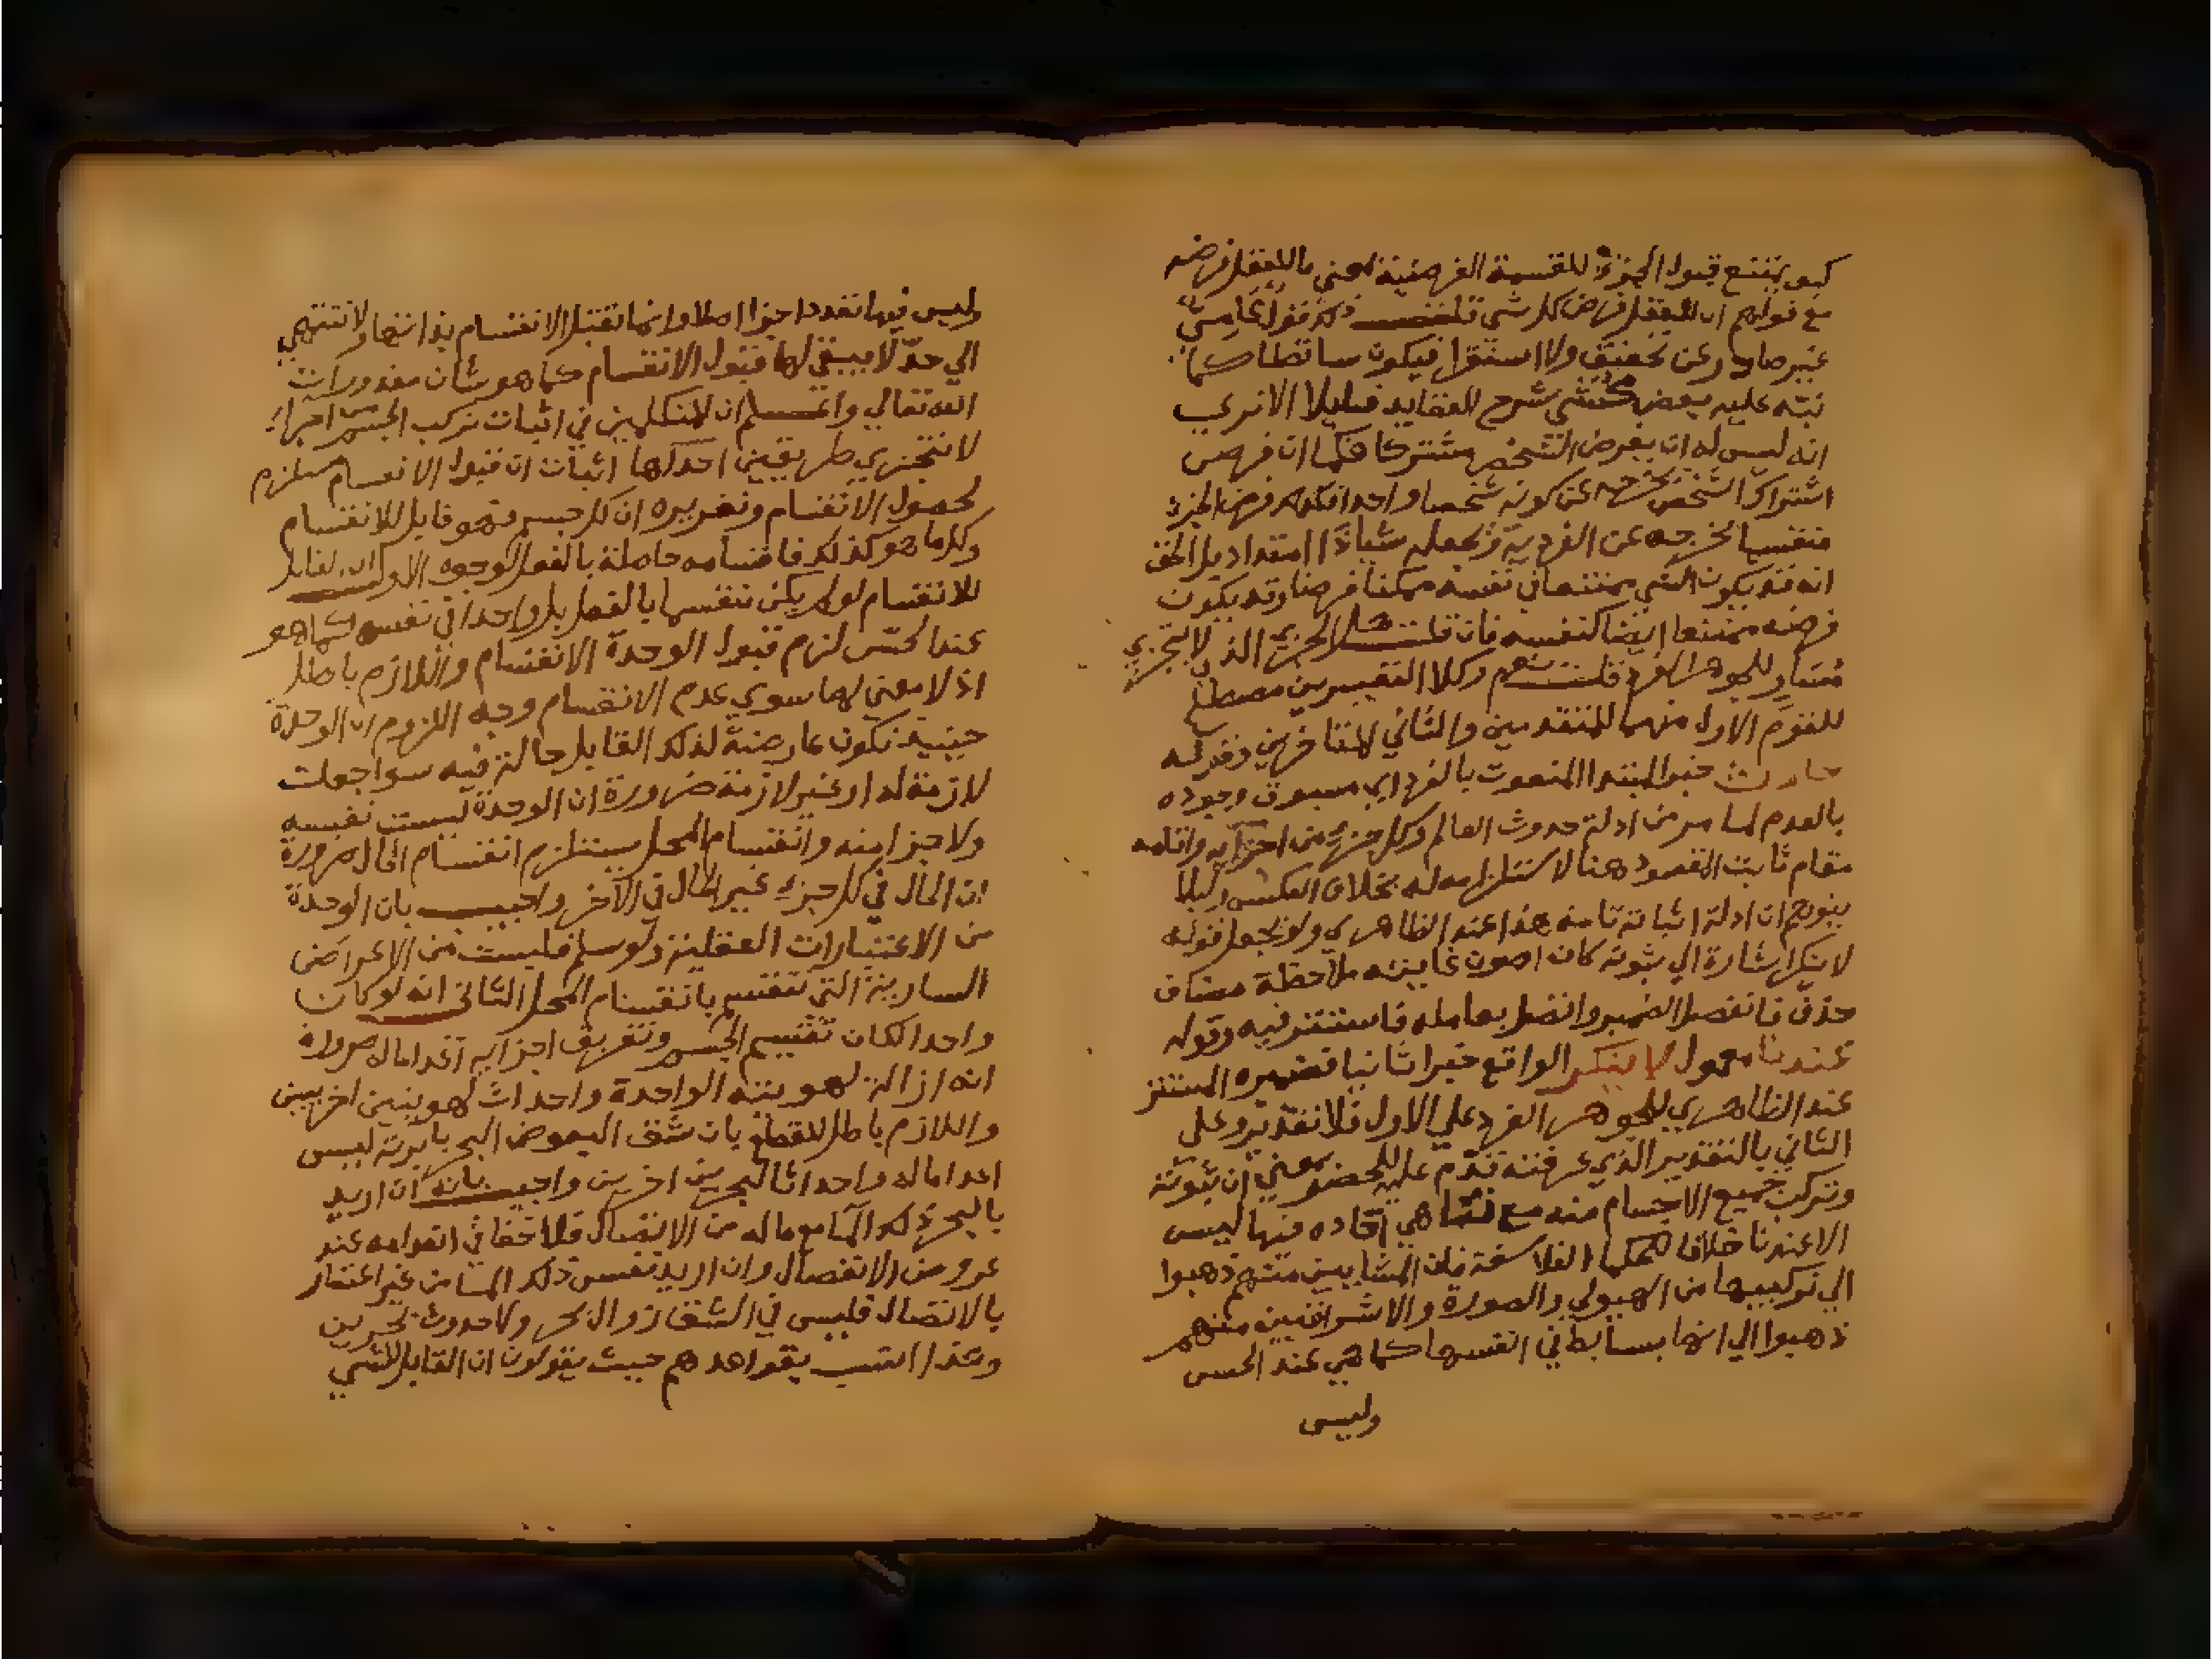 كيف يمتنع قبول الجزء للقسمة الفرضية بمعني ما للعقل فرضه
مع قولهم ان للعقل فرض كل شي قلت ذكر قول عامي
غير صادر عن تحقيق ولا استقرا فيكون ساقطا كما
نبه عليه بعض محشي شرح العقايد قليلا الا تري
انه ليس له ان يفرض الشخص مشتركا فكما ان فرض
اشتراك الشخص يخرجه عن كونه شخصا واحدا فكذا فرض الجزء
منقسما يخرجه عن الفردية ويجعله شيا ذا امتداد بل الحق
انه قد يكون الشي ممتنعا في نفسه ممكنا فرضا وقد يكون
فرضه ممتنعا ايضا كنفسه فان قلت هل الجزء الذي لا يتجزي
مساو للجوهر الفرد قلت نعم وكلا التفسيرين مصطلح
للقوم الاول منهما للمتقدمين والثاني للمتاخرين وقوله
حادث خبر المبتدا المنعوت بالفرد اي مسبوق وجوده
بالعدم لما مر من ادلة حدوث العالم وكل جزء من اجزايه واقامه
مقام ثابت المقصود هنا لاستلزامه له بخلاف العكس وليلا
يتوهم ان ادلة اثباته تامة هذا عند الظاهري ولو يجعل قوله
لا ينكر اشارة الي ثبوته كان اصون غايته ملاحظة مضاف
حذف فانفصل الضمير واتصل بعامله فاستتر فيه وقوله
عندنا معمول لا ينكر الواقع خبرا ثانيا فضميره المستتر
عند الظاهري للجوهر الفرد علي الاول فلا تقدير وعلي
الثاني بالتقدير الذي عرفته قدم عليه للحصر بمعني ان ثبوته
وتركب جميع الاجسام منه مع تناهي احاده فيها ليس
الا عندنا خلافا لحكما الفلاسفة فان المشايين منهم ذهبوا
الي تركيبها من الهيولي والصورة والاشراقيين منهم
ذهبوا الي انها بسايط في انفسها كما هي عند الحس
وليس
وليس فيها تعدد اجزا اصلا وانما تقبل الانقسام بذاتها ولا تنتهي
الي حد لا يبقي لها قبول الانقسام كما هو شان مقدورات
الله تعالي واعلم ان للمتكلمين في اثبات تركب الجسم من اجزاء
لا تتجزي طريقين احدها اثبات ان قبول الانقسام مستلزم
لحصول الانقسام وتقريره ان كل جسم فهو قابل للانقسام
وكل ما هو كذلك فاقسامه حاصلة بالفعل لوجوه الاول ان القابل
للانقسام لو لم يكن منقسما بالفعل بل واحدا في نفسه كما هو
عند الحس لزم قبول الوحدة الانقسام واللازم باطل
اذ لا معني لها سوي عدم الانقسام وجه اللزوم ان الوحدة
حينيذ تكون عارضة لذلك القابل حالة فيه سوا جعلت
لازمة له او غير لازمة ضرورة ان الوحدة ليست نفسه
ولا جزا منه وانقسام المحل يستلزم انقسام الحال ضرورة
ان الحال في كل جزء غير الحال في الاخر واجيب بان الوحدة
من الاعتبارات العقلية ولو سلم فليست من الاعراض
السارية التي تنقسم بانقسام المحل الثاني انه لو كان
واحدا لكان تقسيم الجسم وتفريق اجزايه اعداما له ضرورة
انه ازالة لهويته الواحدة واحداث لهويتين اخريين
واللازم باطل للقطع بان شق البعوض البحر بابرته ليس
اعداما له واحداثا لبحرين اخرين واجيب بانه ان اريد
بالبحر ذلك الما مع ماله من الاتصال فلا خفا في انعدامه عند
عروض الانفصال وان اريد نفس ذلك الما من غير اعتبار
بالاتصال فليس في الشق زوال بحر ولا حدوث بحرين
وهذا انسب بقواعدهم حيث يقولون ان القابل للشي